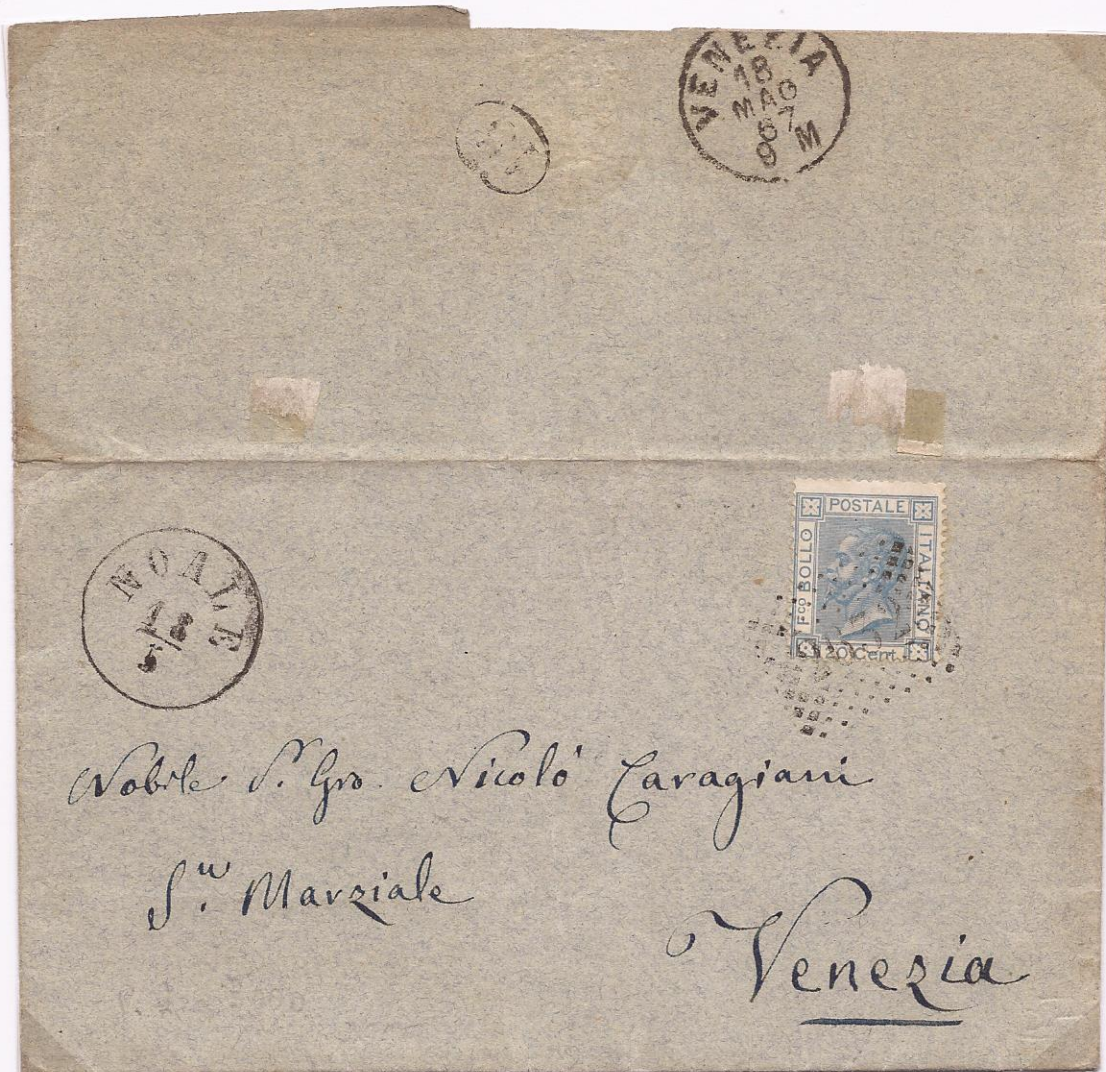 VENEZIA
18
MAG
67
9 M
POSTALE
Fco BOLLO
ITALIANO
20 Cent.
NOALE
18
5
Nobile Sr. Gro. Nicolò Caragiani
Sn. Marziale
Venezia